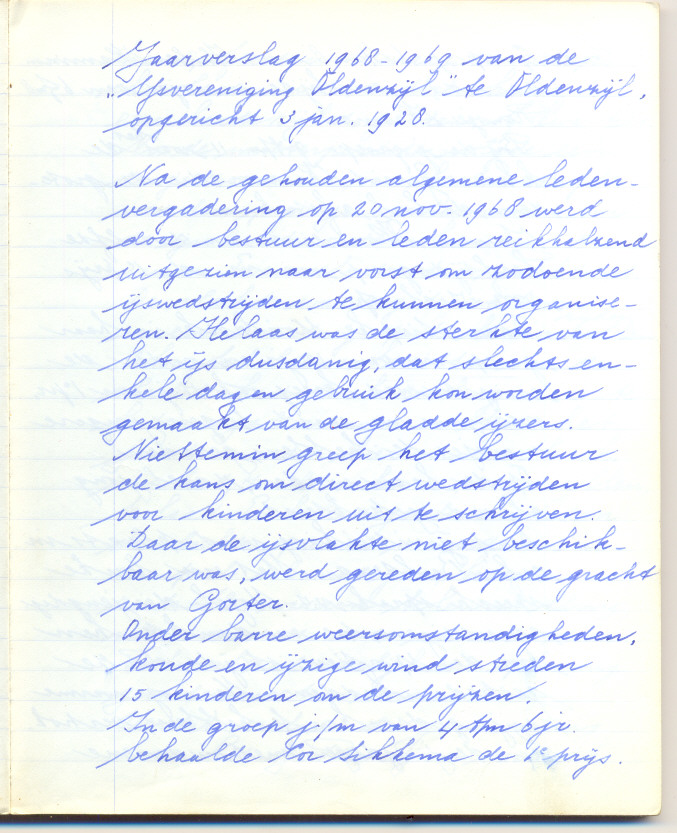 Jaarverslag 1968-1969 van de
„IJsvereniging Oldenzijl" te Oldenzijl,
opgericht 3 jan. 1928.
Na de gehouden algemene leden-
vergadering op 20 nov. 1968 werd
door bestuur en leden reikhalzend
uitgezien naar vorst om zodoende
ijswedstrijden te kunnen organise-
ren. Helaas was de sterkte van
het ijs dusdanig, dat slechts en-
kele dagen gebruik kon worden
gemaakt van de gladde ijzers.
Niettemin greep het bestuur
de kans om direct wedstrijden
voor kinderen uit te schrijven.
Daar de ijsvlakte niet beschik-
baar was, werd gereden op de gracht
van Gorter.
Onder barre weersomstandigheden,
koude en ijzige wind streden
15 kinderen om de prijzen.
In de groep j/m van 4 t/m 6 jr.
behaalde Kor Sikkema de 1e prijs.